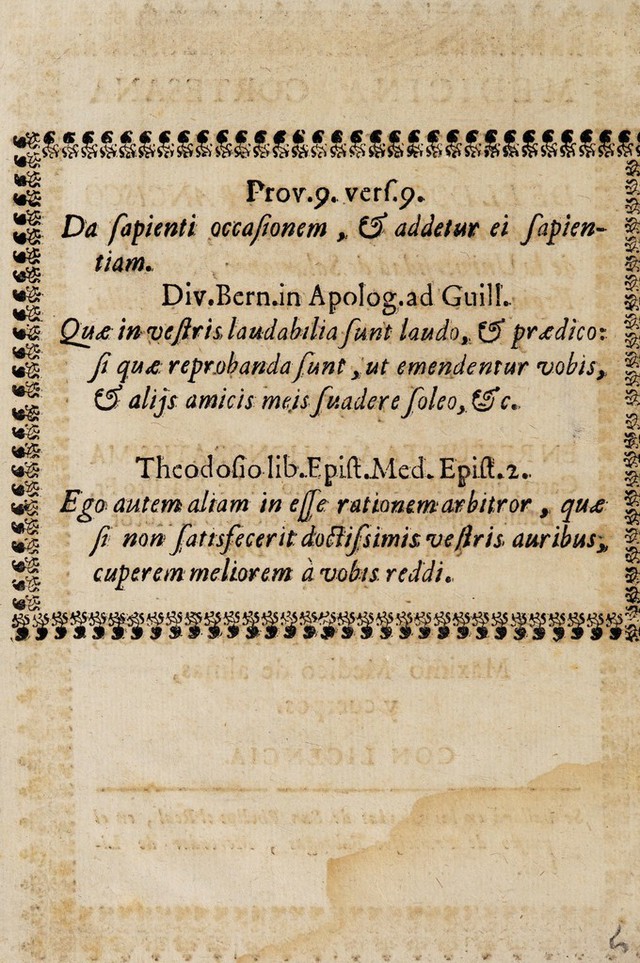 Prov.9. verſ.9.
Da ſapienti occaſionem , & addetur ei ſapien-
tiam.
Div.Bern.in Apolog.ad Guill.
Quæ in veſtris laudabilia ſunt laudo, & prædico:
ſi quæ reprobanda ſunt , ut emendentur vobis,
& alijs amicis meis ſuadere ſoleo, &c.
Theodoſio lib.Epiſt.Med.Epiſt.2.
Ego autem aliam in eſſe rationem arbitror , quæ
ſi non ſatisfecerit doctiſsimis veſtris auribus,
cuperem meliorem à vobis reddi.
MEDICINA CORTESANA
Maximo Medico de almas,
y cuerpos.
CON LICENCIA.